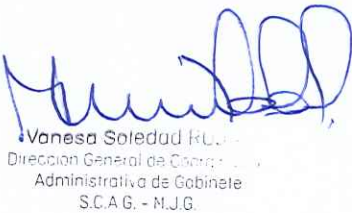 Vanesa Soledad
Dirección General de
Administrativa de Gabinete
S.C.A.G. - M.J.G.